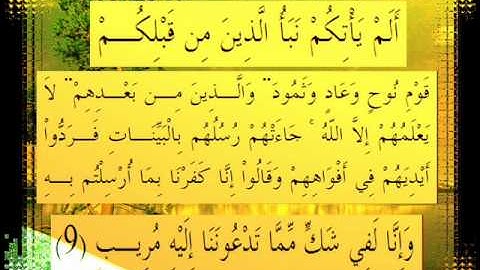 أَلَمْ يَأْتِكُمْ نَبَأُ الَّذِينَ مِن قَبْلِكُـــمْ
قَوْمِ نُوحٍ وَعَادٍ وَثَمُودَ ۛ وَالَّـذِينَ مِـن بَعْـدِهِمْ ۛ لاَ
يَعْلَمُهُمْ إِلاَّ اللّهُ ۚ جَاءَتْهُمْ رُسُلُهُم بِالْبَيِّنَـاتِ فَـرَدُّواْ
أَيْدِيَهُمْ فِي أَفْوَاهِهِمْ وَقَالُواْ إِنَّا كَفَرْنَا بِمَا أُرْسِلْتُم بِـهِ
وَإِنَّا لَفِي شَكٍّ مِّمَّا تَدْعُونَنَا إِلَيْهِ مُرِيـبٍ (9)